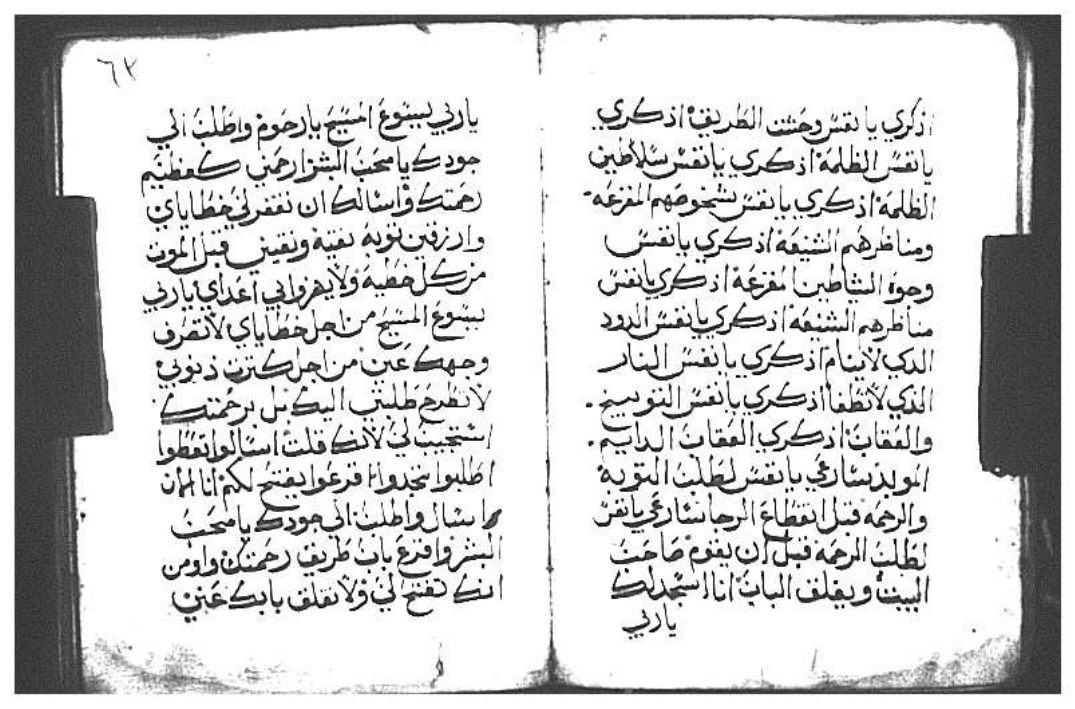 اذكري يا نفس وحشت الطريق اذكري
يا نفس الظلمة اذكري يا نفس سلاطين
الظلمة اذكري يا نفس شخوصهم المفزعه
ومناظرهم الشنيعة اذكري يا نفس
وجوه الشاطين المفزعة اذكري يا نفس
مناظرهم الشنيعة اذكري يا نفس الدود
الدي لا ينام اذكري يا نفس النار
الذي لا تطفا اذكري يا نفس التوبيخ
والعقاب اذكري العقاب الدايم
الموبد سارعي يا نفس لطلب التوبة
والرحمه قبل انقطاع الرجا سارعي يا نفس
لطلب الرحمه قبل ان يقوم صاحب
البيت ويغلق الباب انا اسجد لك
يا ربي
٦٢
يا ربي يسوع المسيح يا رحوم واطلب الي
جودك يا محب البشر ارحمني كعظيم
رحمتك واسالك ان تغفر لي خطاياي
وارزقني توبة نقية ونقيني قبل الموت
من كل خطية ولا يهزوا بي اعداي يا ربي
يسوع المسيح من اجل خطاياي لا تصرف
وجهك عني من اجل كترت ذنوبي
لا تطرح طلبتي اليك بل برحمتك
استجيب لي لانك قلت اسالوا تعطوا
اطلبوا تجدوا اقرعوا يفتح لكم انا الان
اسال واطلب الي جودك يا محب
البشر واقرع باب طريق رحمتك واومن
انك تفتح لي ولا تغلق بابك عني